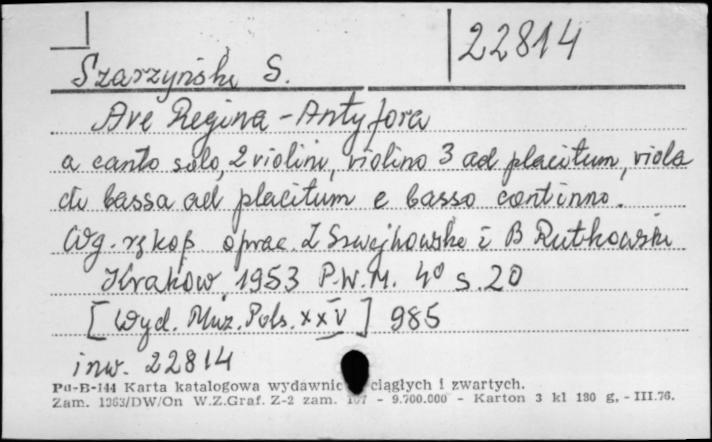 22814
Szarzyński S.
Ave Regina - Antyfora
a canto solo, 2 violini, violino 3 ad placitum, viola
di bassa ad placitum e basso continno.
Wg. rzkop oprac. Z Szwejkowski i B Rutkowski
Kraków, 1953 P.W.M. 4º s. 20
[Wyd. Muz. Pols. XXV] 985
inw. 22814
Pu-B-144 Karta katalogowa wydawnic ciągłych i zwartych.
Zam. 1363/DW/On W.Z.Graf. Z-2 zam. 107 - 9.700.000 - Karton 3 kl 180 g, - III.76.